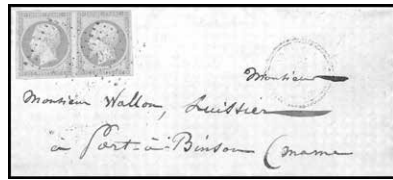 Monsieur
Monsieur Wallon, huissier
à Port-à-Binson (marne